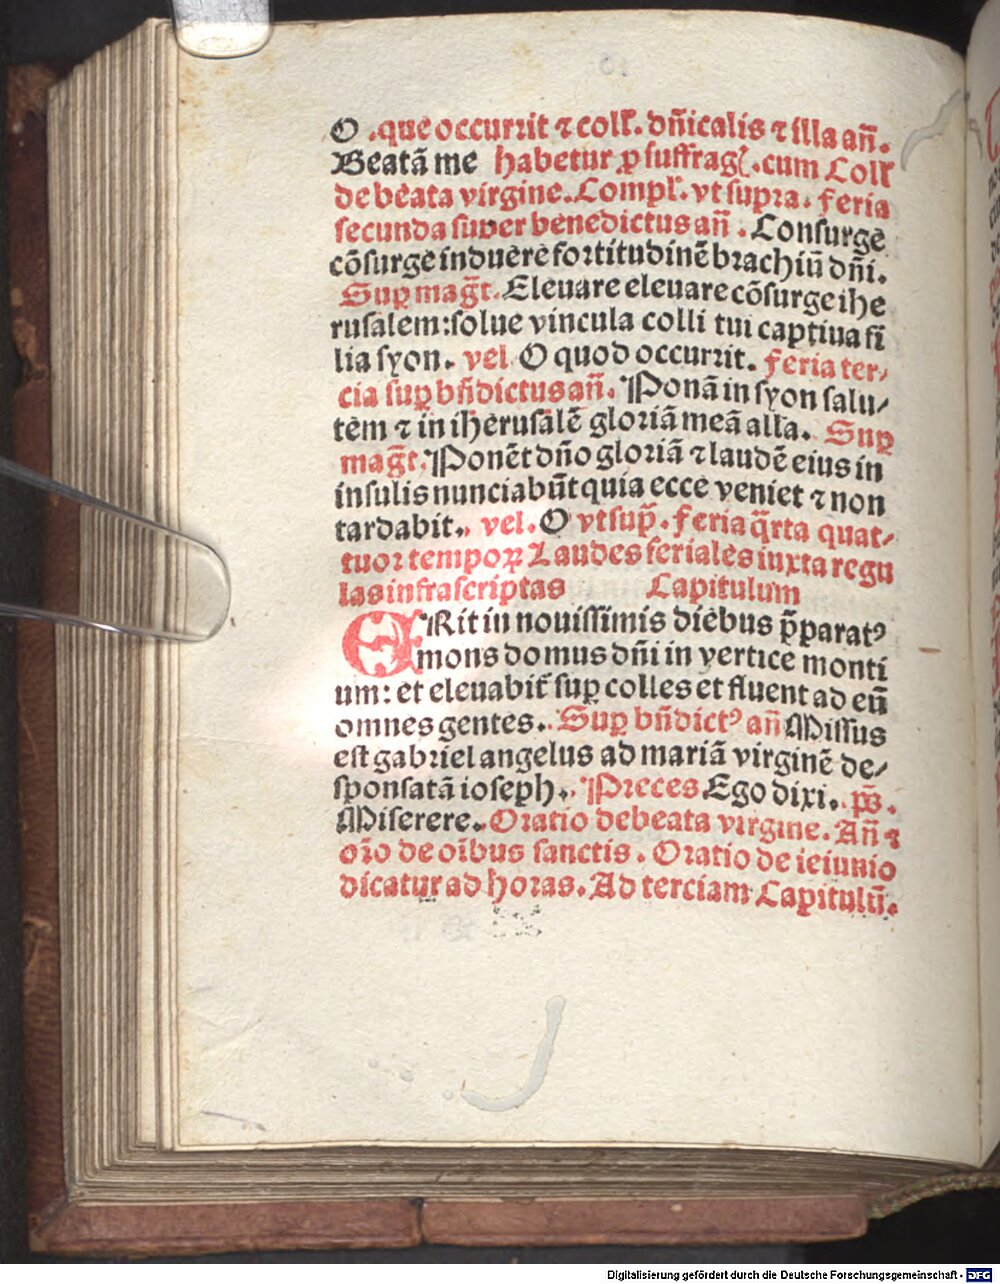 O .que occurrit ⁊ colꝉ. dn̄icalis ⁊ illa an̄.
Beatā me habetur ꝑ suffragꝭ. cum Colꝉ
de beata virgine. Compꝉ. vt supra. feria
secunda super benedictus an̄ . Consurge
cōsurge induere fortitudinē brachiū dn̄i.
Suꝑ mag̃t. Eleuare eleuare cōsurge ihe
rusalem: solue vincula colli tui captiua fi
lia syon. vel O quod occurrit. feria ter⸗
cia suꝑ bn̄dictus an̄. Ponā in syon salu⸗
tem ⁊ in iherusalē gloriā meā alla. Suꝑ
mag̃t. Ponēt dn̄o gloriā ⁊ laudē eius in
insulis nunciabūt quia ecce veniet ⁊ non
tardabit. vel. O vt sup̄. feria q̄rta quat⸗
tuor tempoꝝ Laudes feriales iuxta regu
las infrascriptas Capitulum
ERit in nouissimis diebus p̄paratꝰ
mons domus dn̄i in vertice monti
um: et eleuabit̄ suꝑ colles et fluent ad eū
omnes gentes. Suꝑ bn̄dictꝰ an̄ Missus
est gabriel angelus ad mariā virginē de⸗
sponsatā ioseph. Preces Ego dixi. ps̄.
Miserere. Oratio de beata virgine. An̄ ⁊
or̄o de oībus sanctis. Oratio de ieiunio
dicatur ad horas. Ad terciam Capitulū.
Digitalisierung gefördert durch die Deutsche Forschungsgemeinschaft - DFG